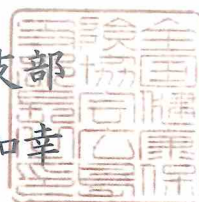 支部
幸
全国健康保
険協会広島
支部長之印